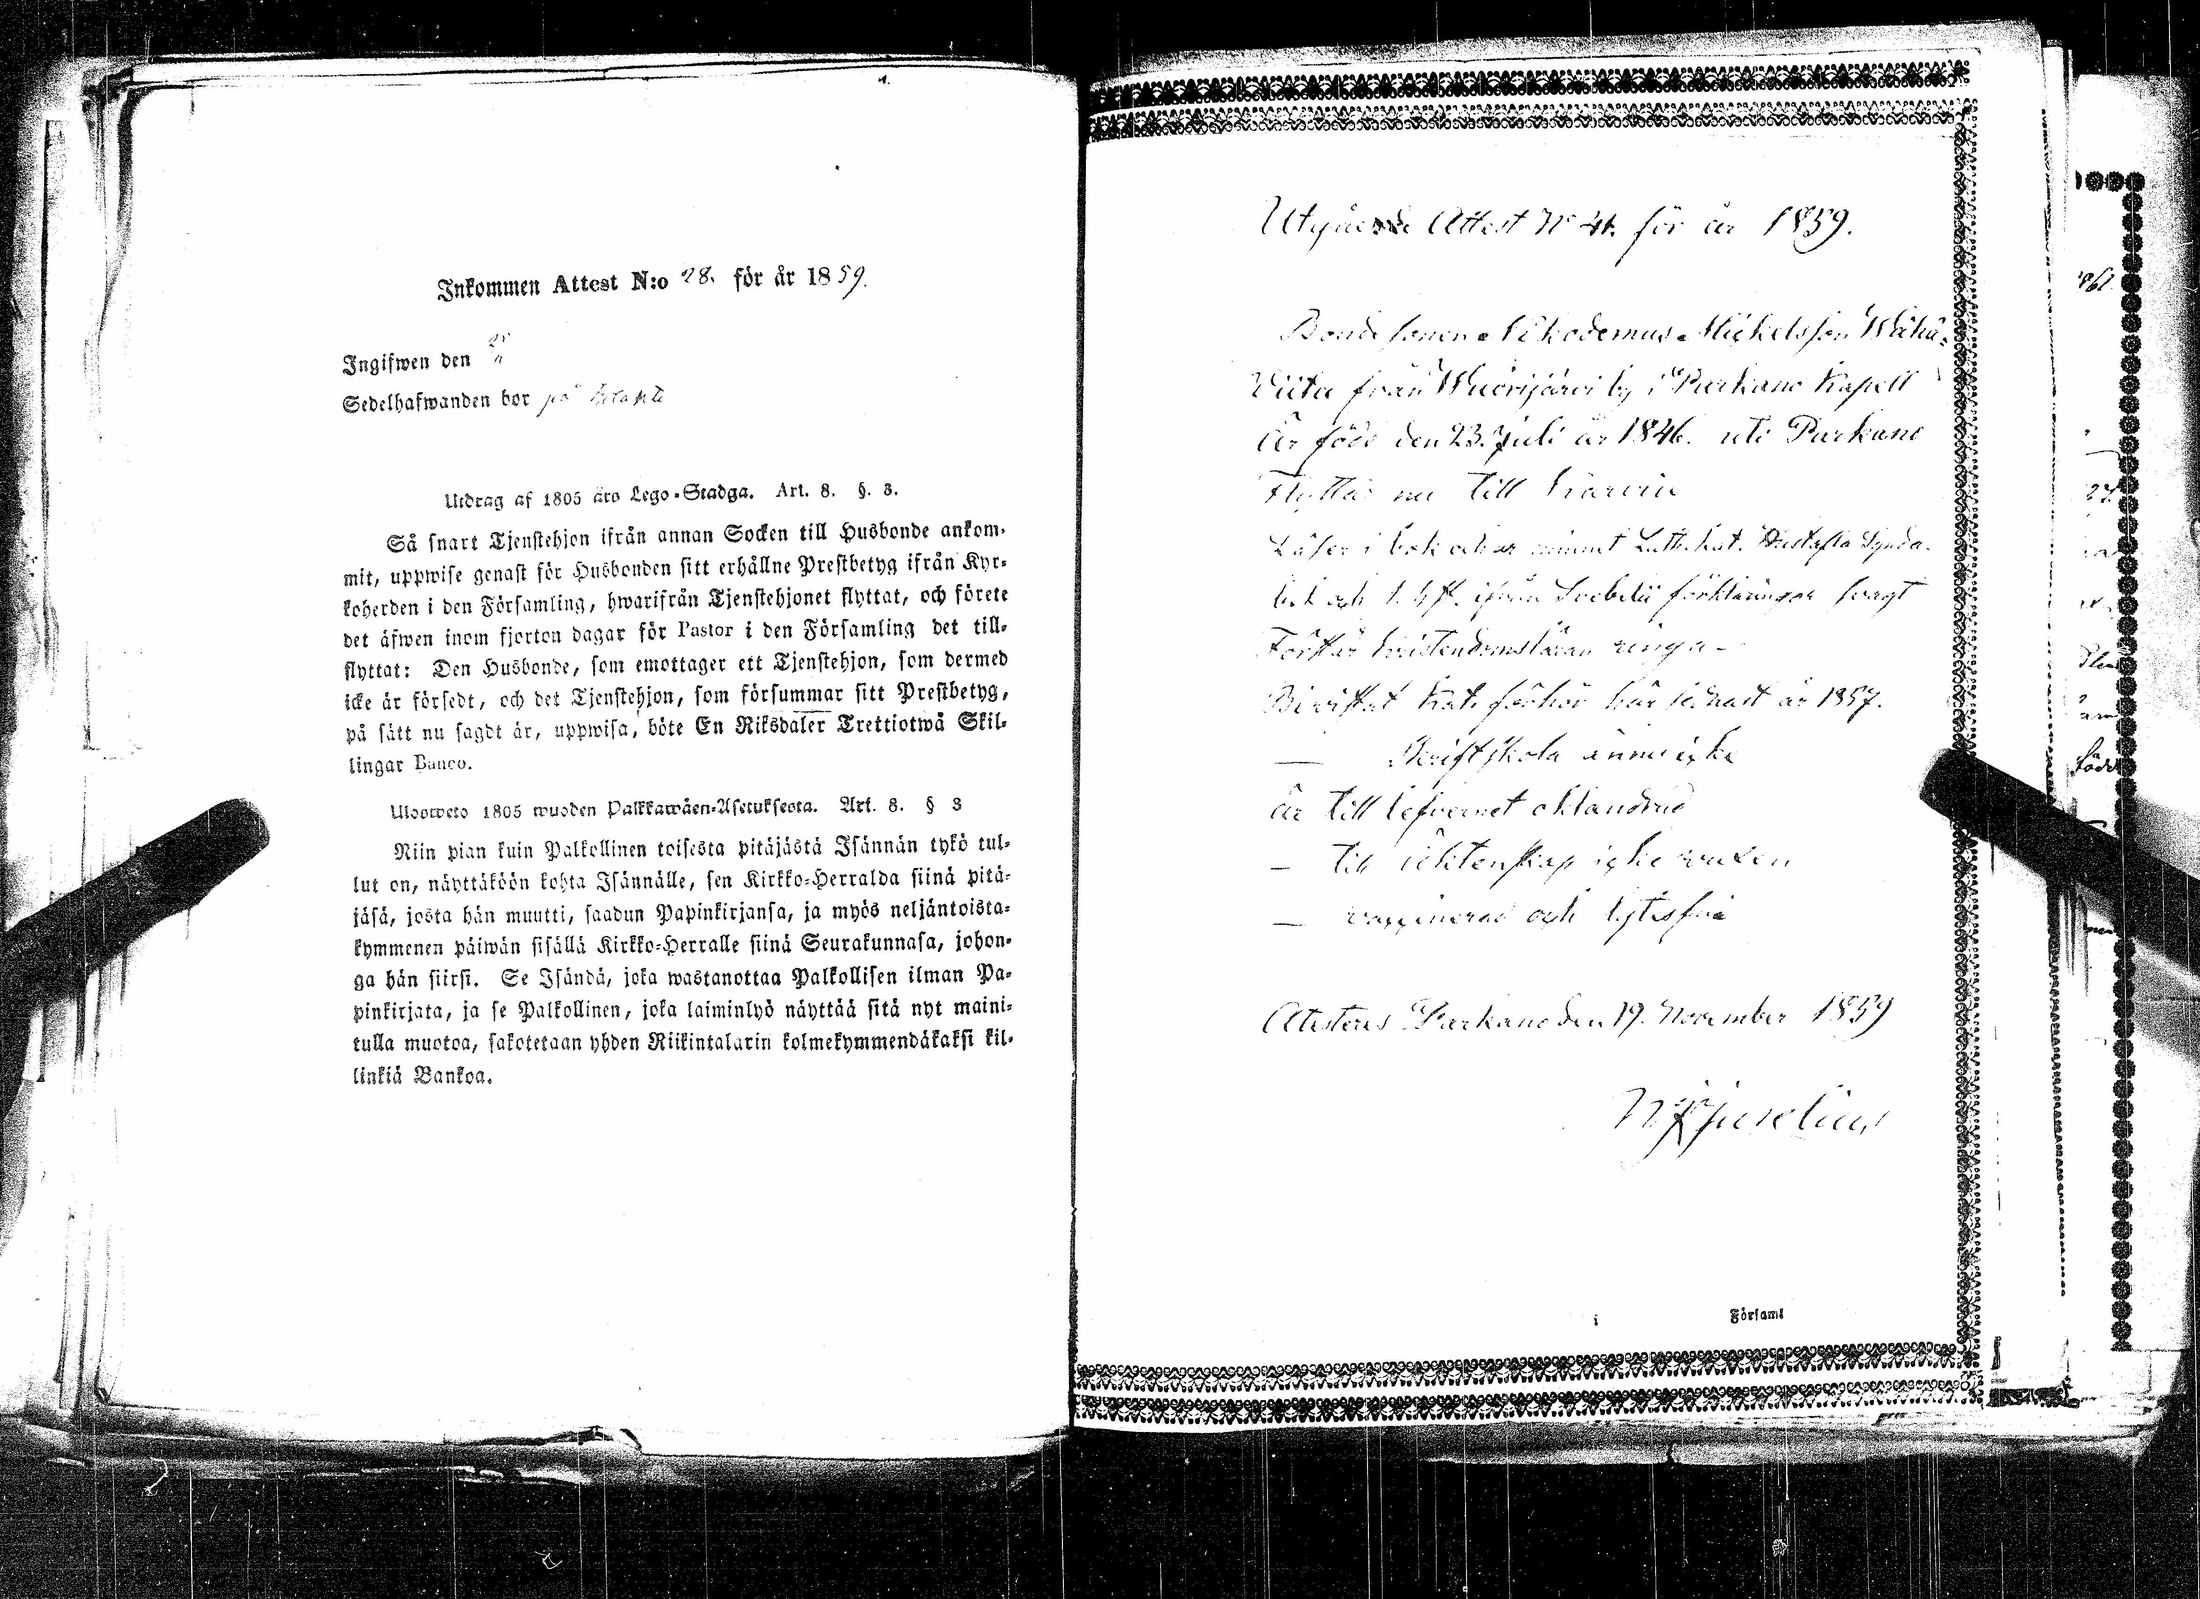 Inkommen Attest N:o 28. för år 1859.
Ingifwen den
Sedelhafwanden bor på
Utdrag af 1805 års Lego-Stadga. Art. 8. §. 3.
Så snart Tjenstehjon ifrån annan Socken till Husbonde ankom-
mit, uppwise genast för Husbonden sitt erhållne Prestbetyg ifrån Kyr-
koherden i den Församling, hwarifrån Tjenstehjonet flyttat, och förete
det äfwen inom fjorton dagar för Pastor i den Församling det till-
flyttat: Den Husbonde, som emottager ett Tjenstehjon, som dermed
icke är försedt, och det Tjenstehjon, som försummar sitt Prestbetyg,
på sätt nu sagdt är, uppwisa, böte En Riksdaler Trettiotwå Skil-
lingar Banco.
Ulosweto 1805 wuoden Palkkawäen-Asetuksesta. Art. 8. § 3
Niin pian kuin Palkollinen toisesta pitäjästä Isännän tykö tul-
lut on, näyttäköön kohta Isännälle, sen Kirkko-Herralda siinä pitä-
jäsä, josta hän muutti, saadun Papinkirjansa, ja myös neljäntoista-
kymmenen päiwän sisällä Kirkko-Herralle siinä Seurakunnasa, johon-
ga hän siirsi. Se Isändä, joka wastanottaa Palkollisen ilman Pa-
pinkirjata, ja se Palkollinen, joka laiminlyö näyttää sitä nyt maini-
tulla muotoa, sakotetaan yhden Riikintalarin kolmekymmendäkaksi kil-
linkiä Bankoa.
Utgående Attest No 41. för år 1859.
Bondesonen Nikodemus Mickelsson Wähä-
Viita från Wuorijärvi by i Parkano Kapell
Är född den 23. Juli år 1846. uti Parkano
Flyttar nu till Karvia
Läser i bok och ur minnet Luth. Kat. Hustafla Synda-
b. och ifrån Svebelii förklaringar svagt
Förstår kristendomsläran ringa -
Bivistat Kat. förhör här sednast år 1857.
— Skriftskola ännu icke
är till lefvernet oklandrad
— till äktenskap icke vuxen
— vaccinerad och lytesfri
Attesteras Parkano den 19. November 1859
Juselius
i Församl